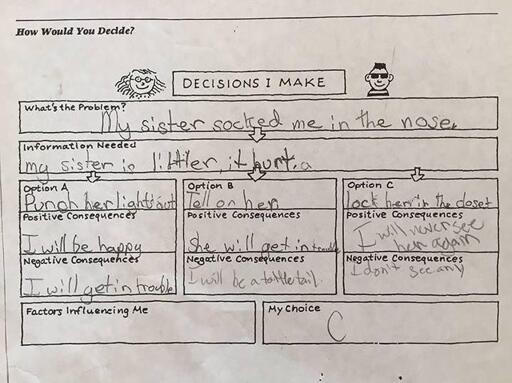 How Would You Decide?
DECISIONS I MAKE
What's the Problem?
My sister socked me in the nose.
Information Needed
my sister is littler, it hurt. a
Option A
Punch her lights out
Positive Consequences
I will be happy
Negative Consequences
I will get in trouble
Option B
Tell on her
Positive Consequences
She will get in trouble
Negative Consequences
I will be a tattletail.
Option C
lock her in the closet
Positive Consequences
I will never see
her again
Negative Consequences
I don't see any
Factors Influencing Me
My Choice
C